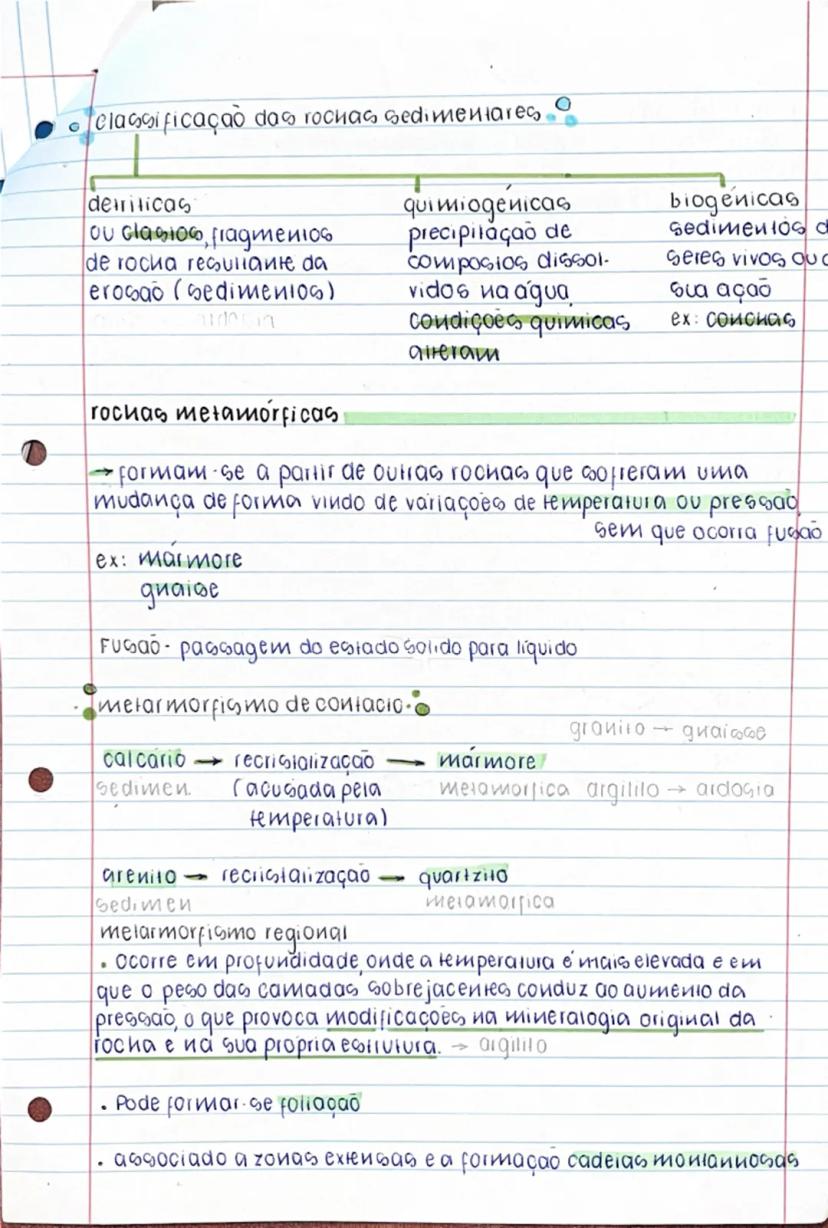 classificação das rochas sedimentares
detríticas
ou clastos, fragmentos
de rocha resultante da
erosão (sedimentos)
quimiogénicas
precipitação de
compostos dissol-
vidos na água
condições químicas
alteram
biogénicas
sedimentos d
seres vivos ou
sua ação
ex: conchas
rochas metamórficas
→ formam-se a partir de outras rochas que sofreram uma
mudança de forma vindo de variações de temperatura ou pressão,
sem que ocorra fusão
ex: mármore
gnaise
Fusão - passagem do estado sólido para líquido
metarmorfismo de contacto
granito → gnaisse
calcário → recristalização → mármore
sedimen. (acusada pela metamorfica argilito → ardosia
temperatura)
arenito → recristalização → quartzito
sedimen metamorfica
metarmorfismo regional
• Ocorre em profundidade, onde a temperatura é mais elevada e em
que o peso das camadas sobrejacentes conduz ao aumento da
pressão, o que provoca modificações na mineralogia original da
rocha e na sua propria estrutura. → argilito
• Pode formar-se foliação
• associado a zonas extensas e a formação cadeias montanhosas